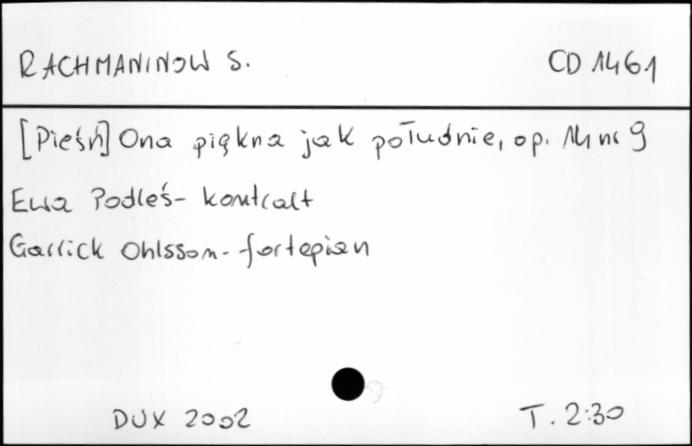 RACHMANINOW S. CD 1461
[Pieśń] Ona piękna jak południe, op. 14 nr 9
Ewa Podleś - kontralt
Garrick Ohlsson - fortepian
DUX 2002 T. 2:30